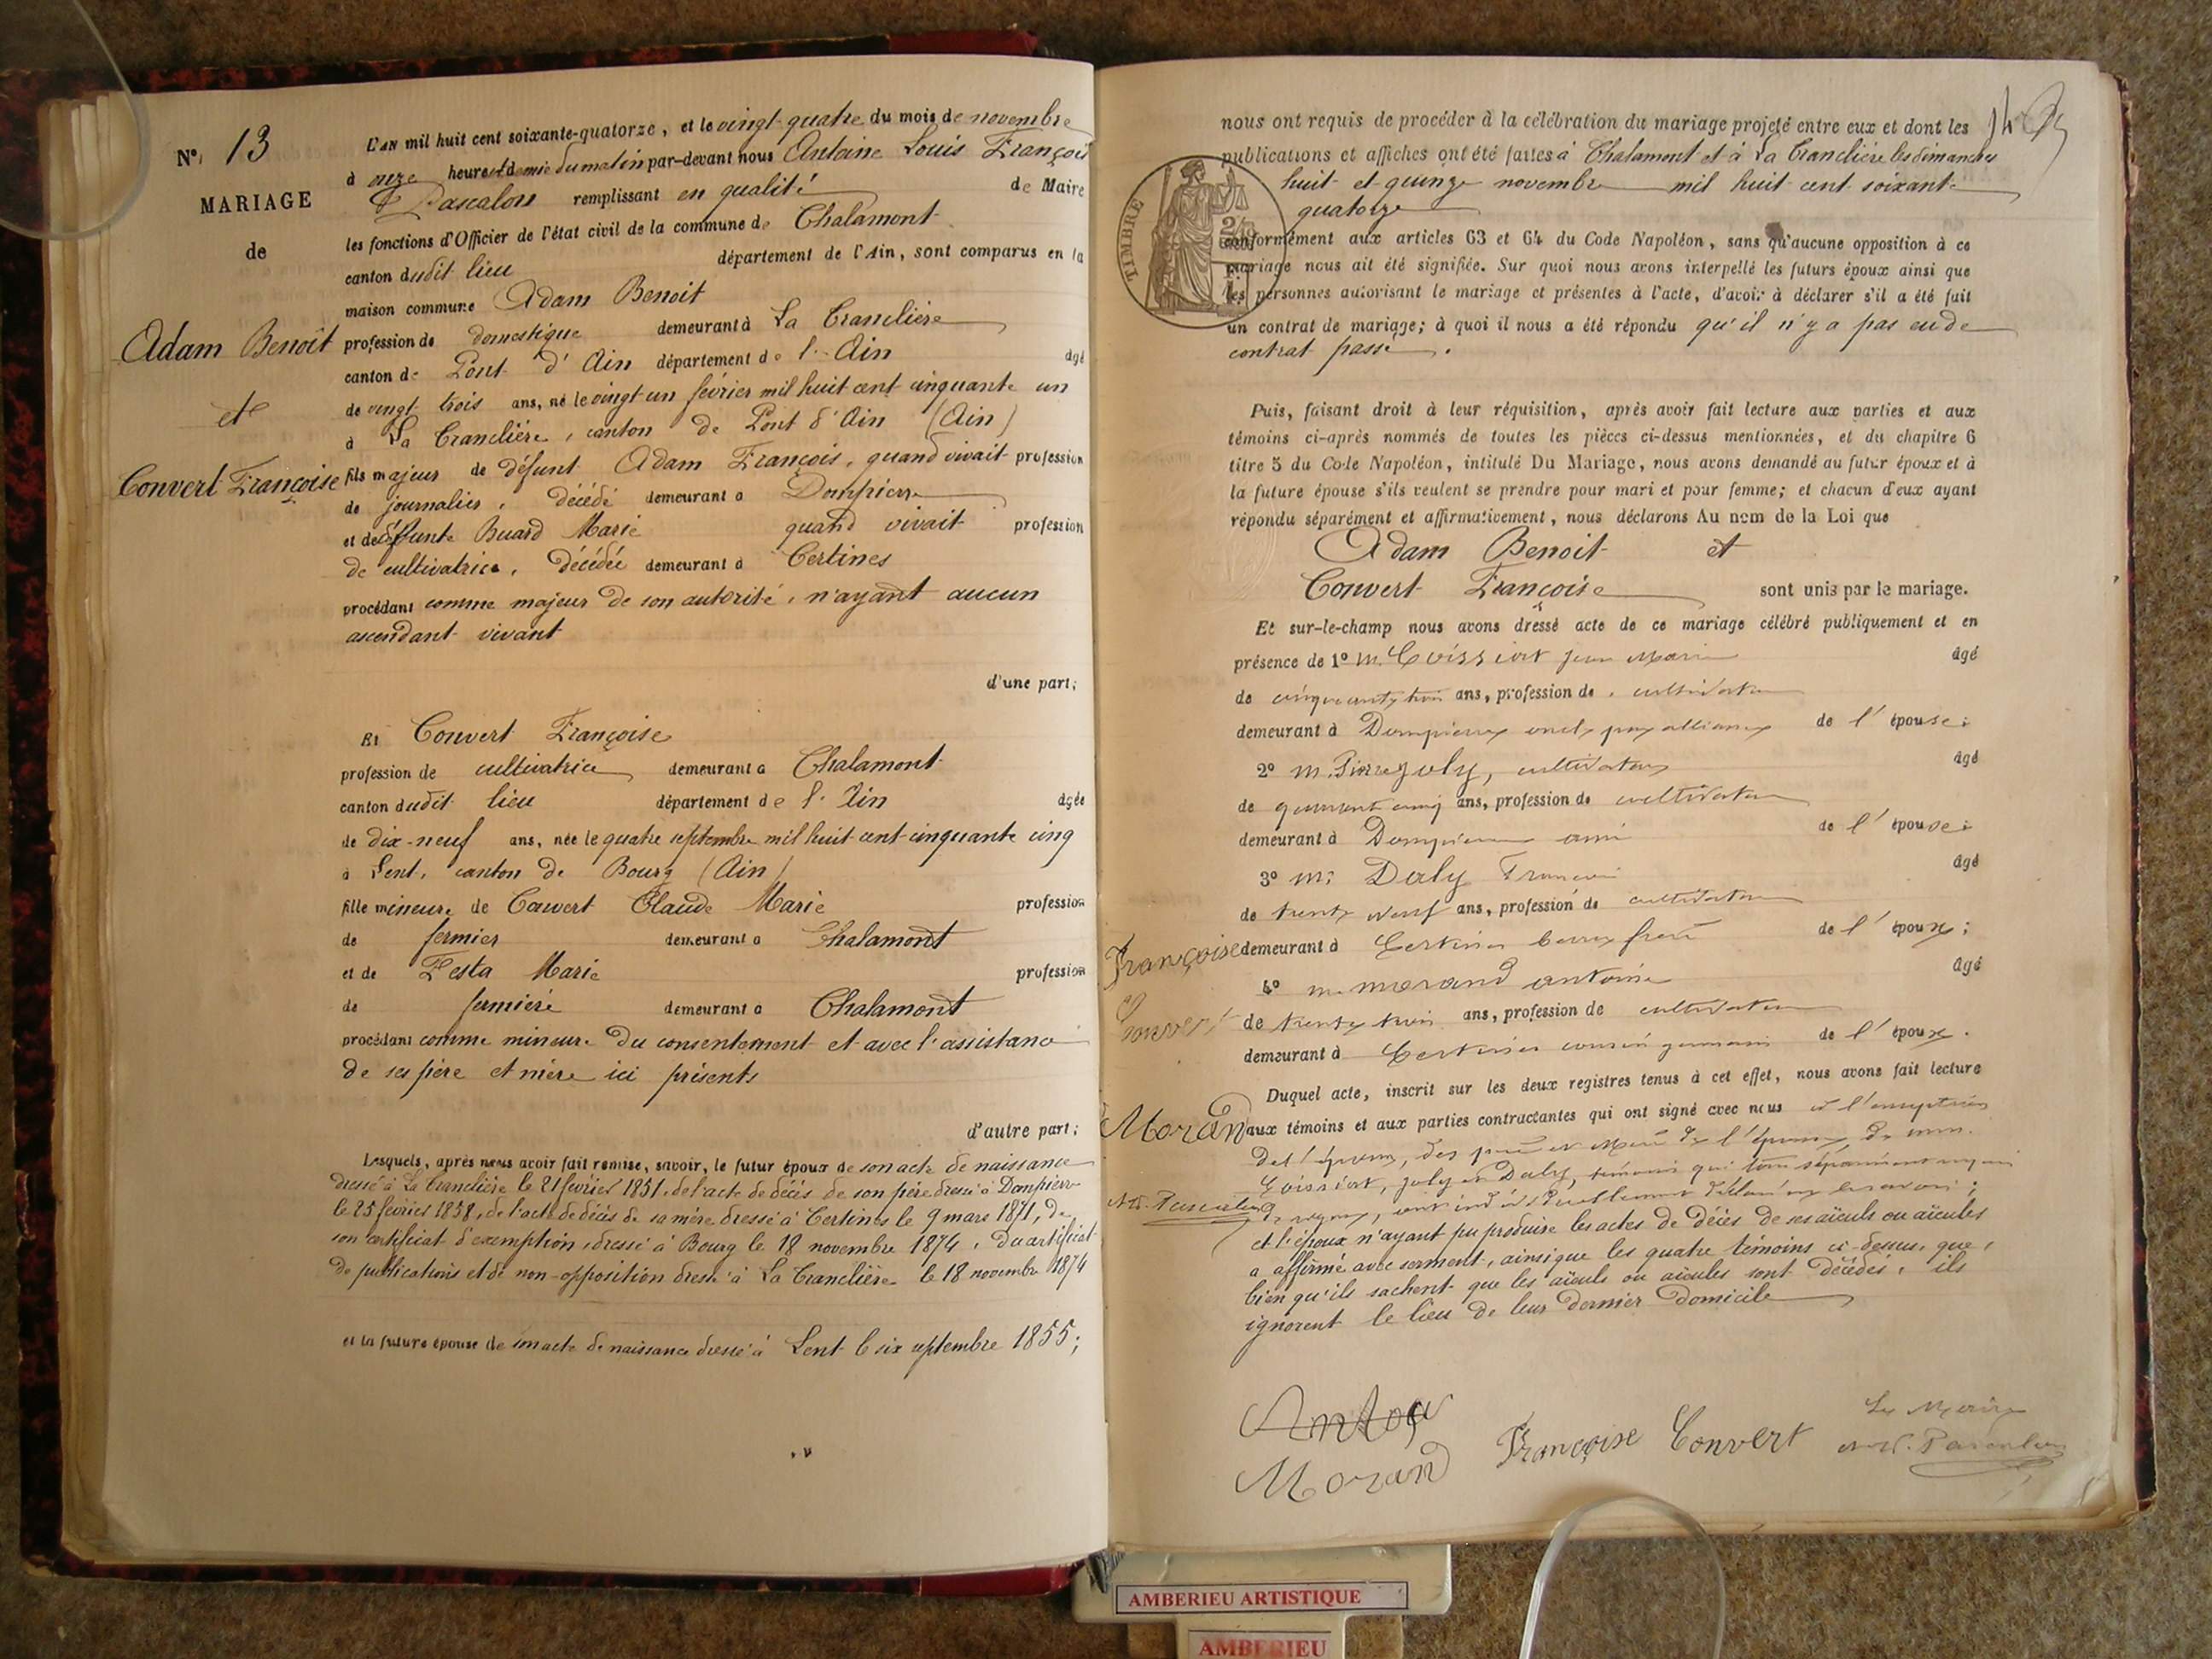 N° 13
MARIAGE
de
Adam Benoit
et
Convert Françoise
L'AN mil huit cent soixante-quatorze, et le vingt-quatre du mois de novembre
à onze heures et demie du matin par-devant nous Antoine Louis François
Pascalon remplissant en qualité de Maire
les fonctions d'Officier de l'état civil de la commune de Chalamont
canton dudit lieu département de l'Ain, sont comparus en la
maison commune Adam Benoit
profession de domestique demeurant à La Tranclière
canton de Pont d'Ain département de l'Ain âgé
de vingt trois ans, né le vingt un février mil huit cent cinquante un
à La Tranclière, canton de Pont d'Ain (Ain)
fils majeur de défunt Adam François, quand vivait profession
de journalier, décédé demeurant à Dompierre
et de défunte Buard Marie quand vivait profession
de cultivatrice, décédée demeurant à Certines
procédant comme majeur de son autorité, n'ayant aucun
ascendant vivant
d'une part;
Et Convert Françoise
profession de cultivatrice demeurant à Chalamont
canton dudit lieu département de l'Ain âgée
de dix-neuf ans, née le quatre septembre mil huit cent cinquante cinq
à Lent, canton de Bourg (Ain)
fille mineure de Convert Claude Marie profession
de fermier demeurant à Chalamont
et de Festa Marie profession
de fermière demeurant à Chalamont
procédant comme mineure du consentement et avec l'assistance
de ses père et mère ici présents
d'autre part;
Lesquels, après nous avoir fait remise, savoir, le futur époux de son acte de naissance
dressé à La Tranclière le 21 février 1851, de l'acte de décès de son père dressé à Dompierre
le 25 février 1858, de l'acte de décès de sa mère dressé à Certines le 9 mars 1871, de
son certificat d'exemption, dressé à Bourg le 18 novembre 1874, du certificat
de publications et de non-opposition dressé à La Tranclière le 18 novembre 1874
et la future épouse de son acte de naissance dressé à Lent le six septembre 1855;
nous ont requis de procéder à la célébration du mariage projeté entre eux et dont les
publications et affiches ont été faites à Chalamont et à La Tranclière les dimanches
huit et quinze novembre mil huit cent soixante
quatorze
TIMBRE
conformément aux articles 63 et 64 du Code Napoléon, sans qu'aucune opposition à ce
mariage nous ait été signifiée. Sur quoi nous avons interpellé les futurs époux ainsi que
les personnes autorisant le mariage et présentes à l'acte, d'avoir à déclarer s'il a été fait
un contrat de mariage; à quoi il nous a été répondu qu'il n'y a pas eu de
contrat passé.
Puis, faisant droit à leur réquisition, après avoir fait lecture aux parties et aux
témoins ci-après nommés de toutes les pièces ci-dessus mentionnées, et du chapitre 6
titre 5 du Code Napoléon, intitulé Du Mariage, nous avons demandé au futur époux et à
la future épouse s'ils veulent se prendre pour mari et pour femme; et chacun d'eux ayant
répondu séparément et affirmativement, nous déclarons Au nom de la Loi que
Adam Benoit et
Convert Françoise sont unis par le mariage.
Et sur-le-champ nous avons dressé acte de ce mariage célébré publiquement et en
présence de 1° M. Jean Marie âgé
de cinquante trois ans, profession de cultivateur
demeurant à Dompierre oncle par alliance de l'épouse;
2° M. Pierre Joly, cultivateur âgé
de quarante cinq ans, profession de cultivateur
demeurant à Dompierre ami de l'épouse;
3° M. Daly François âgé
de trente neuf ans, profession de cultivateur
demeurant à Certines beau frère de l'époux;
4° M. Morand Antoine âgé
de trente trois ans, profession de cultivateur
demeurant à Certines cousin germain de l'époux.
Duquel acte, inscrit sur les deux registres tenus à cet effet, nous avons fait lecture
aux témoins et aux parties contractantes qui ont signé avec nous à l'exception
de l'époux, des père et mère de l'épouse, de MM.
Joly et Daly, témoins qui
et l'époux n'ayant pu produire les actes de décès de ses aïeuls ou aïeules
a affirmé avec serment, ainsi que les quatre témoins ci-dessus, que,
bien qu'ils sachent que les aïeuls ou aïeules sont décédés, ils
ignorent le lieu de leur dernier domicile
Françoise
Convert
Morand
Morand
Françoise Convert
Le Maire
Pascalon
AMBERIEU ARTISTIQUE
AMBERIEU